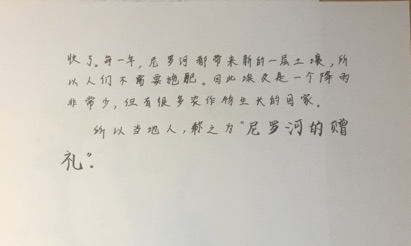 快了。每一年，尼罗河都带来新的一层土壤，所
以人们不需要施肥。因此埃及是一个降雨
非常少，但有很多农作物生长的国家。
所以当地人，称之为“尼罗河的赠
礼”.